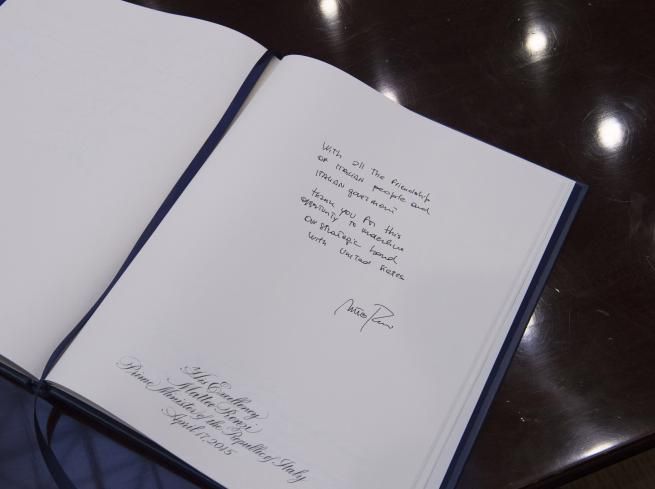 With all the friendship
of ITALIAN people and
ITALIAN goverment
thank you for this
opportunity to
our strategic bond
with United States
Matteo Renzi
His Excellency
Matteo Renzi
Prime Minister of the Republic of Italy
April 17, 2015